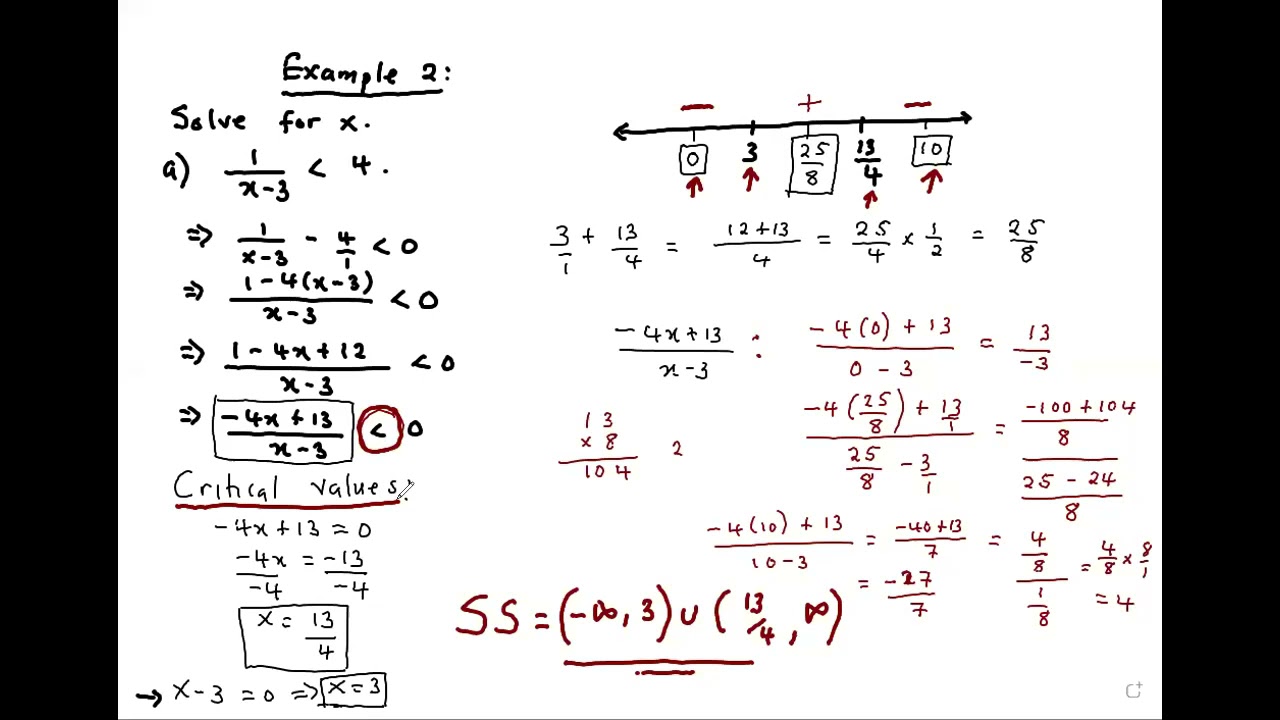 Example 2:
Solve for x.
a) 1/(x-3) < 4.
⇒ 1/(x-3) - 4/1 < 0
⇒ (1-4(x-3))/(x-3) < 0
⇒ (1-4x+12)/(x-3) < 0
⇒ (-4x+13)/(x-3) < 0
Critical values:
-4x+13 = 0
-4x/-4 = -13/-4
x = 13/4
→ x-3 = 0 ⇒ x=3
- + -
0 3 25/8 13/4 10
3/1 + 13/4 = (12+13)/4 = 25/4 × 1/2 = 25/8
(-4x+13)/(x-3) : (-4(0)+13)/(0-3) = 13/-3
13
× 8
104
2
(-4(25/8)+13/1)/(25/8-3/1) = ((-100+104)/8)/((25-24)/8)
= (4/8)/(1/8) = 4/8 × 8/1
= 4
(-4(10)+13)/(10-3) = (-40+13)/7
= -27/7
SS = (-∞, 3) ∪ (13/4, ∞)